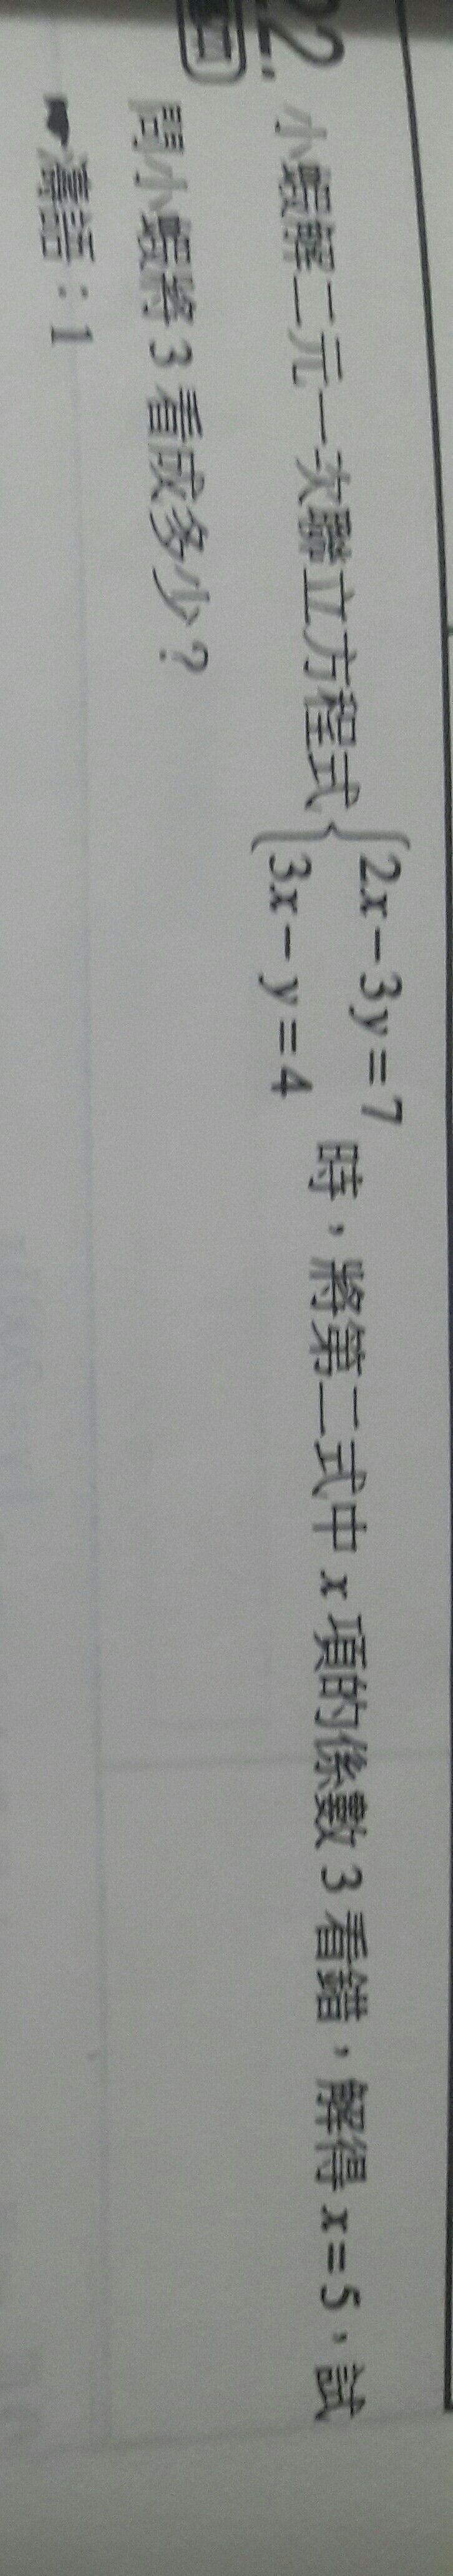 22. 小蝦解二元一次聯立方程式{2x－3y＝7 3x－y＝4 時，將第二式中 x 項的係數 3 看錯，解得 x＝5，試
問小蝦將 3 看成多少？
☛答語：1